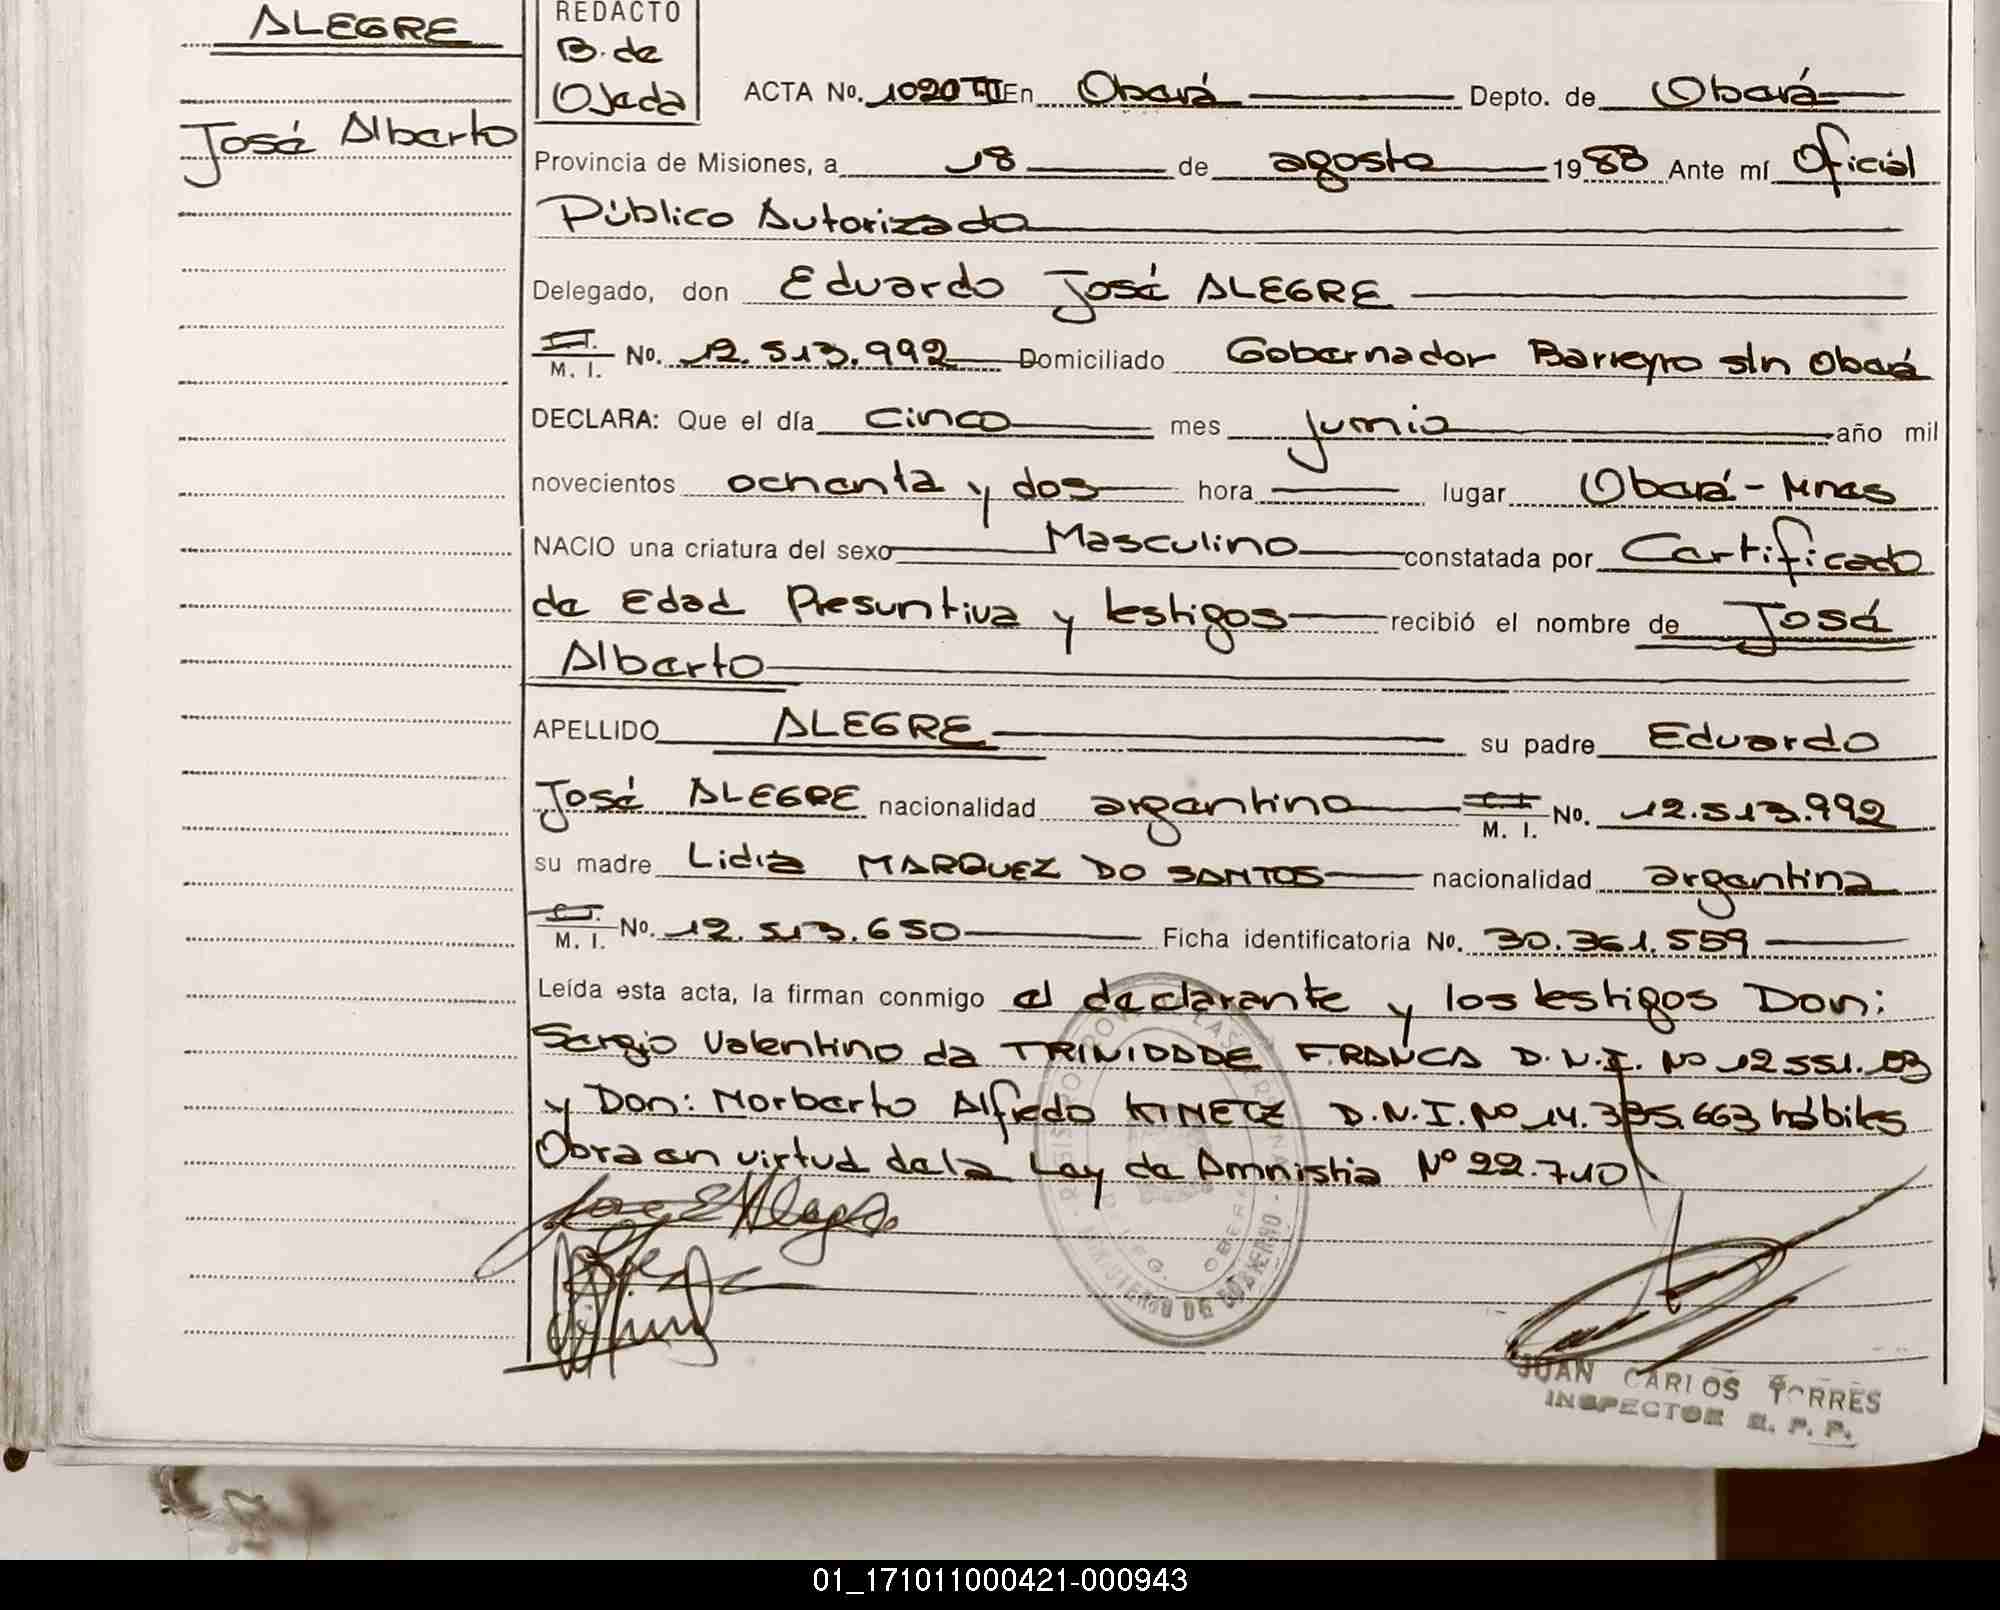 ALEGRE
José Alberto
REDACTO
B. de
Ojeda
ACTA No. 1020 TII En Oberá Depto. de Oberá
Provincia de Misiones, a 18 de agosto 1988 Ante mí Oficial
Público Autorizado
Delegado, don Eduardo José ALEGRE
C.I. M. I. No. 12.513.992 Domiciliado Gobernador Barreyro s/n Oberá
DECLARA: Que el día cinco mes junio año mil
novecientos ochenta y dos hora lugar Oberá - Mnes
NACIO una criatura del sexo Masculino constatada por Certificado
de Edad Presuntiva y testigos recibió el nombre de José
Alberto
APELLIDO ALEGRE su padre Eduardo
José ALEGRE nacionalidad argentino C.I. M. I. No. 12.513.992
su madre Lidia MARQUEZ DO SANTOS nacionalidad argentina
C.I. M. I. No. 12.513.650 Ficha identificatoria No. 30.361.559
Leída esta acta, la firman conmigo el declarante y los testigos Don:
Sergio Valentino da TRINIDADE FRANCA D.N.I. No 12551.
y Don: Norberto Alfredo KINETZ D.N.I. No 14.335.663 hábiles
Obra en virtud de la Ley de Amnistia Nº 22.710
MINISTERIO DE GOBIERNO
JUAN CARLOS TORRES
INSPECTOR R. P. P.
01_171011000421-000943